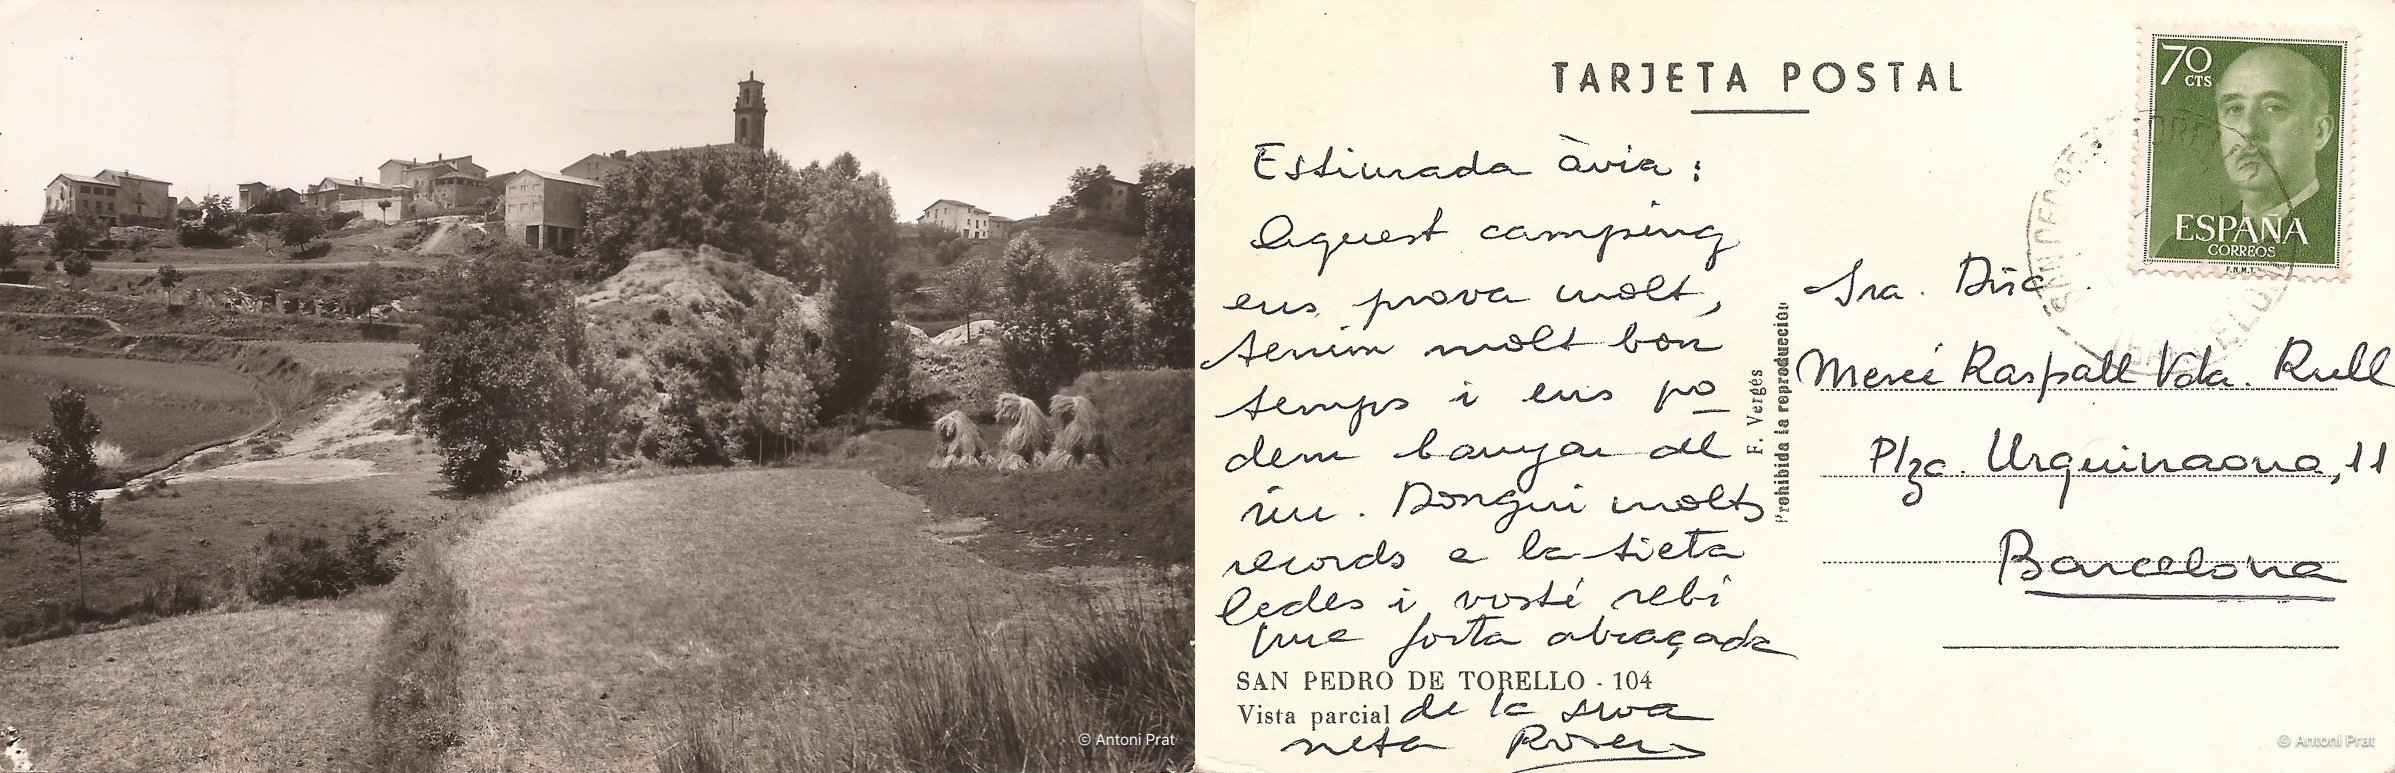 © Antoni Prat
TARJETA POSTAL
Estimada àvia:
Aquest camping
ens prova molt,
tenim molt bon
temps i ens po
dem banyar al
riu. Dongui molts
records a la tieta
i vosté rebi
una forta abraçada
SAN PEDRO DE TORELLO - 104
Vista parcial de la seva
neta Roser
F. Vergés
Prohibida la reproducción
70
CTS
ESPAÑA
CORREOS
F.N.M.T.
Sra. Dña.
Mercé Raspall Vda. Rull
Plza. Urquinaona, 11
Barcelona
© Antoni Prat